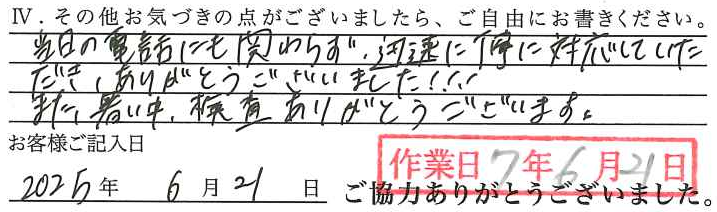 Ⅳ．その他お気づきの点がございましたら、ご自由にお書きください。
当日の電話にも関わらず、迅速に丁寧に対応していた
だき、ありがとうございました!!!
また、暑い中、検査ありがとうございます。
お客様ご記入日
作業日 7年6月21日
2025年 6月21日 ご協力ありがとうございました。